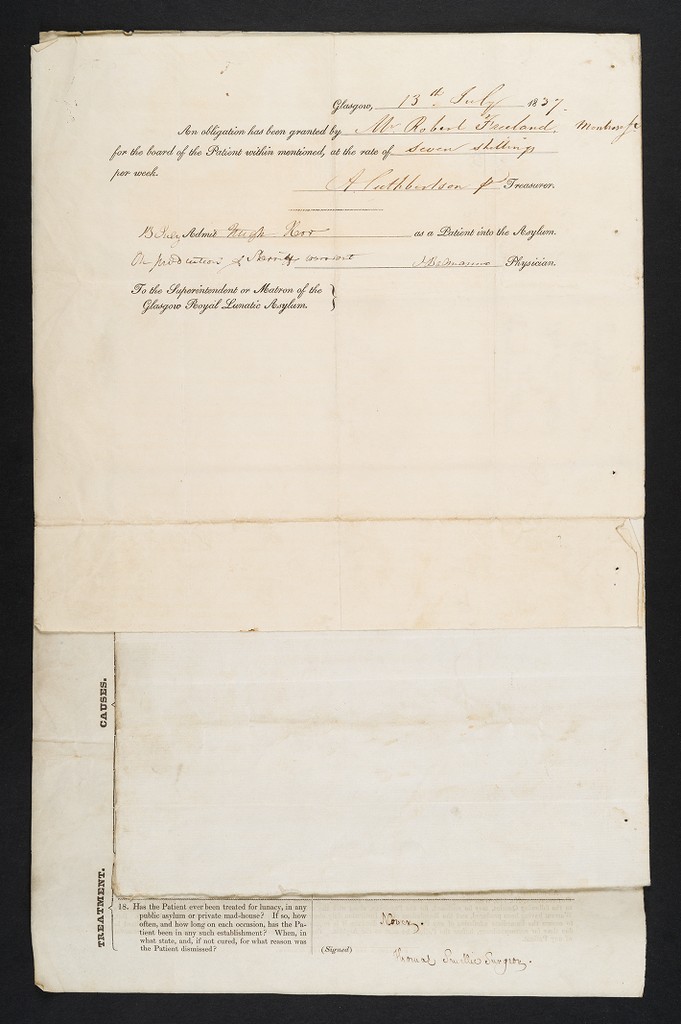 Glasgow, 13th July 1837.
An obligation has been granted by Mr Robert Freeland,
for the board of the Patient within mentioned, at the rate of seven shillings
per week.
A. Cuthbertson pr Treasurer.
13 July Admit Hugh Kerr as a Patient into the Asylum.
On production of Sheriff's warrant Physician.
To the Superintendent or Matron of the
Glasgow Royal Lunatic Asylum.
CAUSES.
TREATMENT.
18. Has the Patient ever been treated for lunacy, in any
public asylum or private mad-house? If so, how
often, and how long on each occasion, has the Pa-
tient been in any such establishment? When, in
what state, and, if not cured, for what reason was
the Patient dismissed?
Never.
(Signed) Thomas Smellie Surgeon.